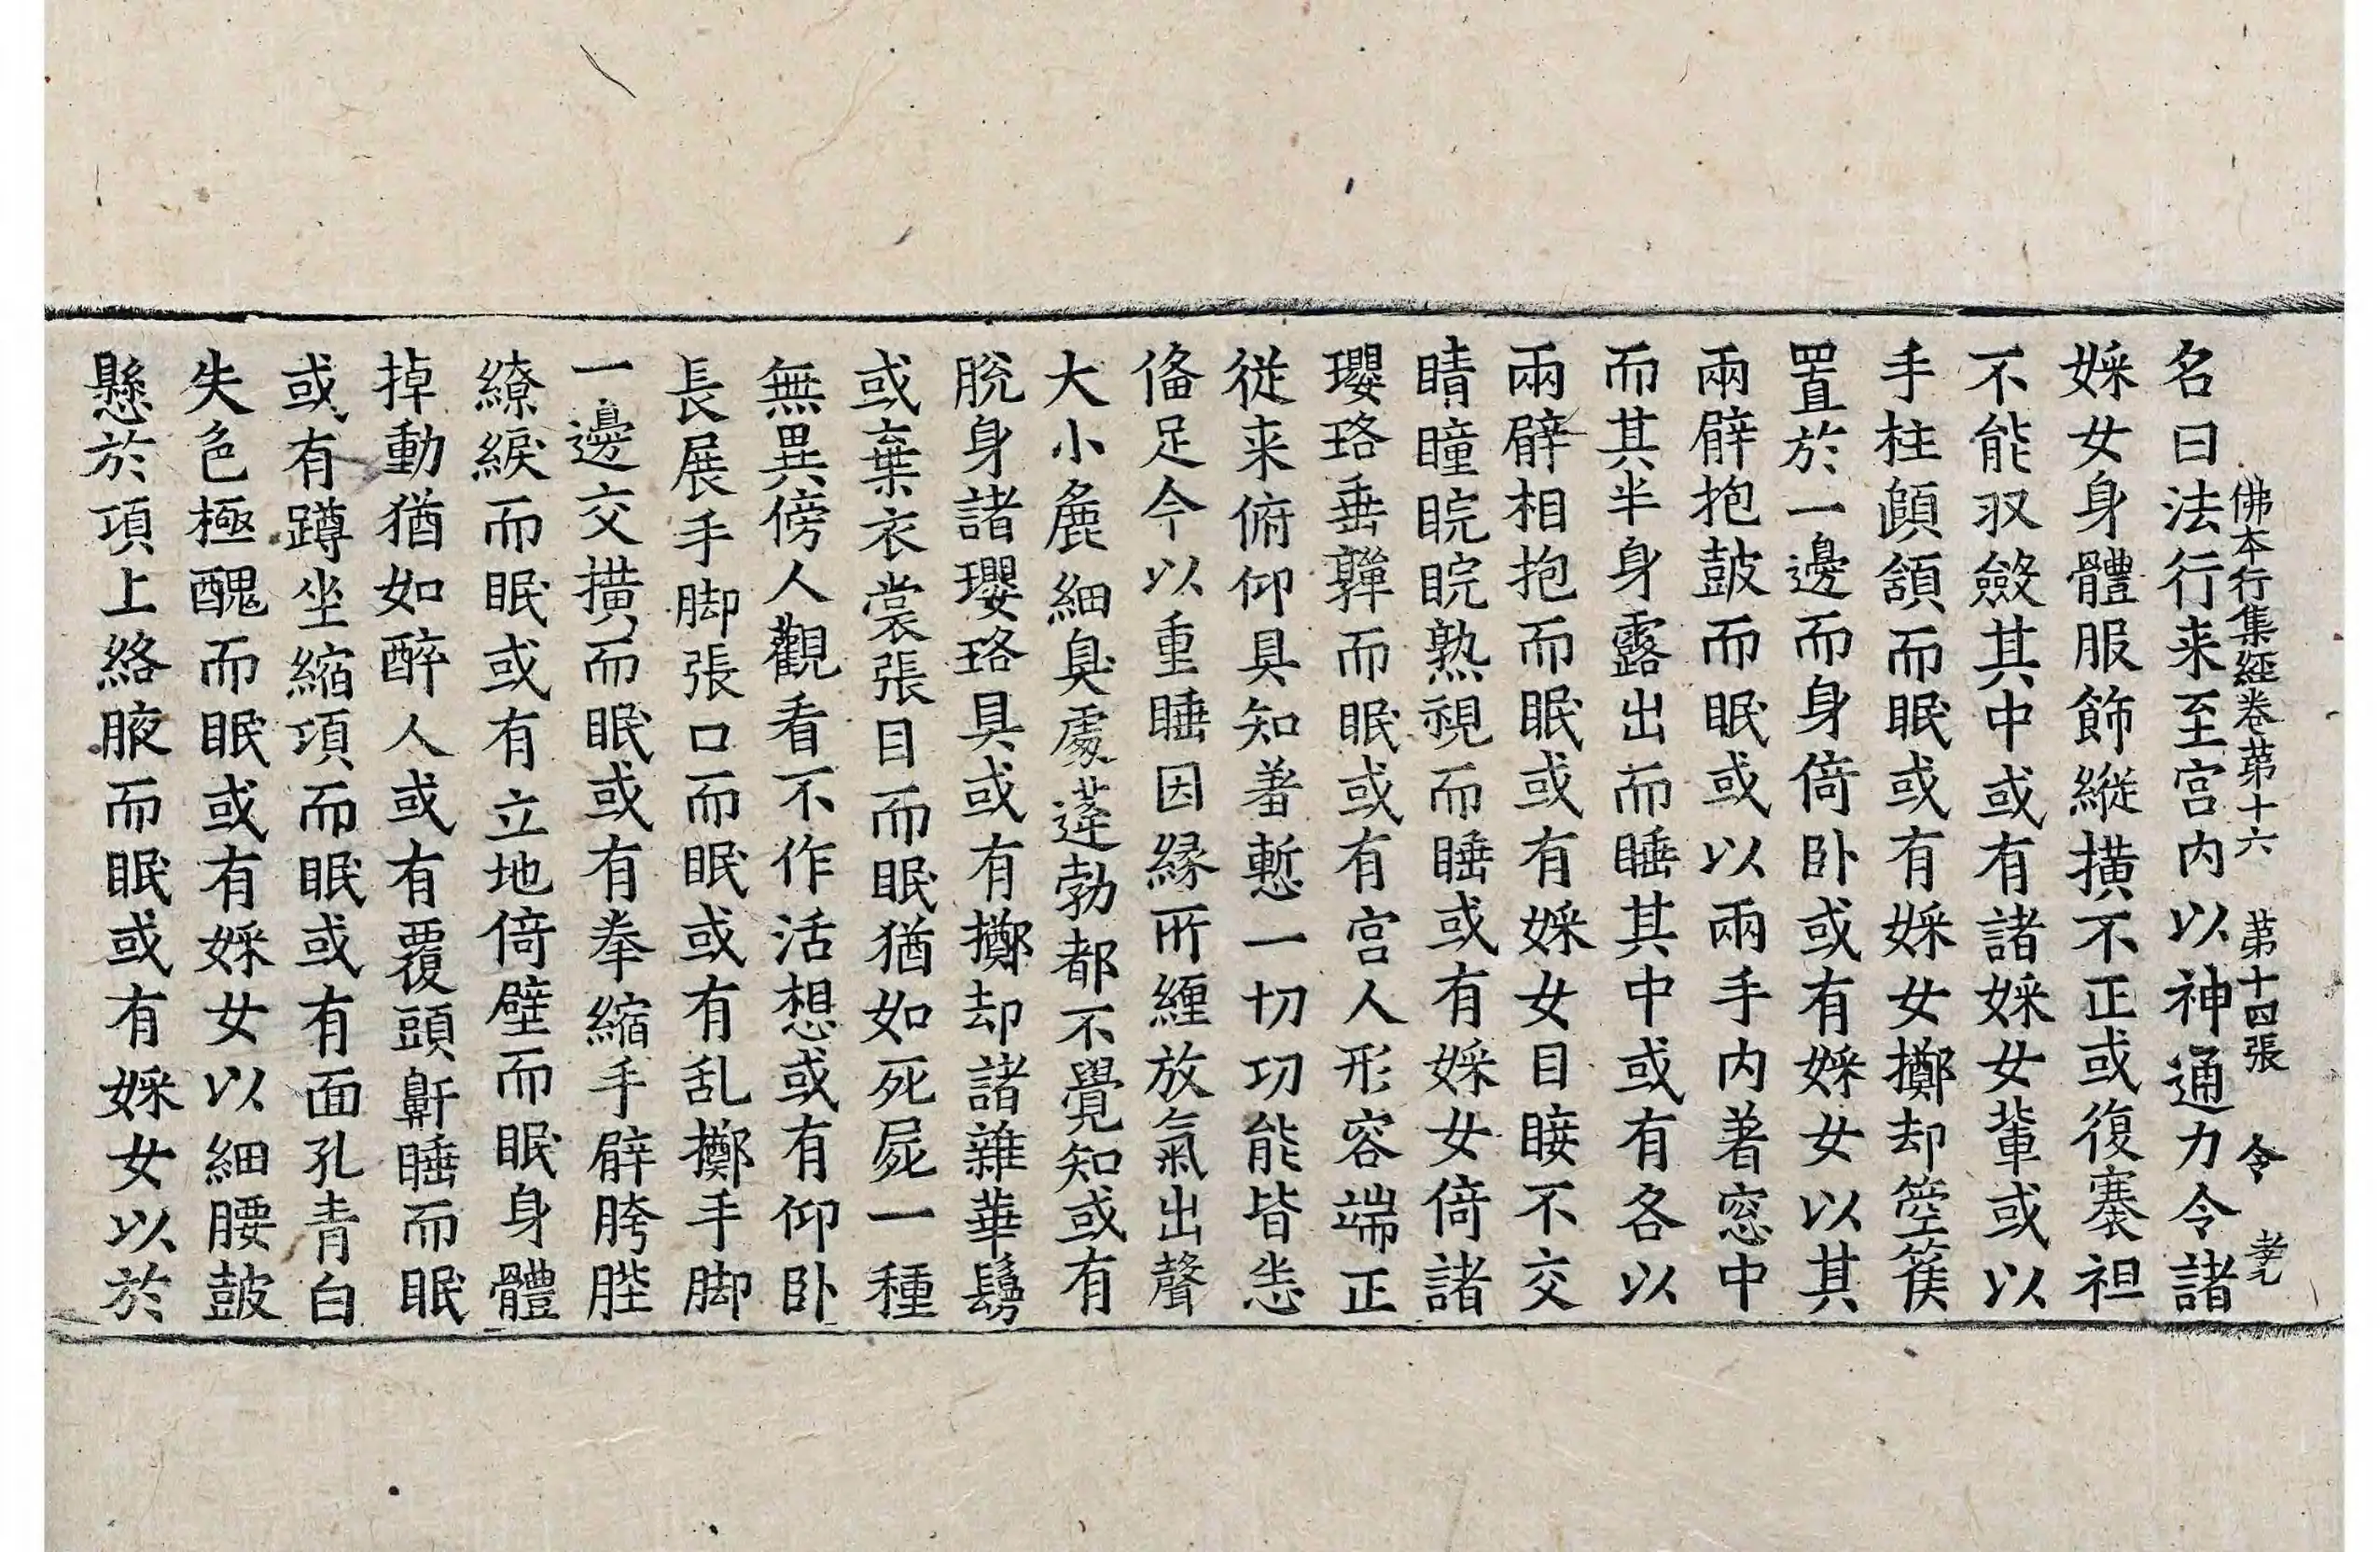 佛本行集經卷苐十六 苐十四張 令 孝
名曰法行来至宫内以神通力令諸
婇女身體服飾縱撗不正或復褰袒
不能収斂其中或有諸婇女輩或以
手柱頗頷而眠或有婇女擲却箜篌
置於一邊而身倚卧或有婇女以其
兩臂抱鼓而眠或以兩手内著窓中
而其半身露出而睡其中或有各以
兩臂相抱而眠或有婇女目睫不交
睛瞳睆睆熟視而睡或有婇女倚諸
瓔珞垂嚲而眠或有宫人形容端正
従来俯仰具知羞慙一切功能皆悉
俻足今以重睡因縁所纏放氣出聲
大小麁細臭處蓬勃都不覺知或有
脫身諸瓔珞具或有擲却諸雜華鬘
或棄衣裳張目而眠猶如死屍一種
無異傍人觀看不作活想或有仰卧
長展手脚張口而眠或有乱擲手脚
一邊交撗而眠或有拳縮手臂胯䏶
繚綟而眠或有立地倚壁而眠身體
掉動猶如醉人或有覆頭鼾睡而眠
或有蹲坐縮項而眠或有面孔青白
失色極醜而眠或有婇女以細腰鼓
懸於項上絡腋而眠或有婇女以於